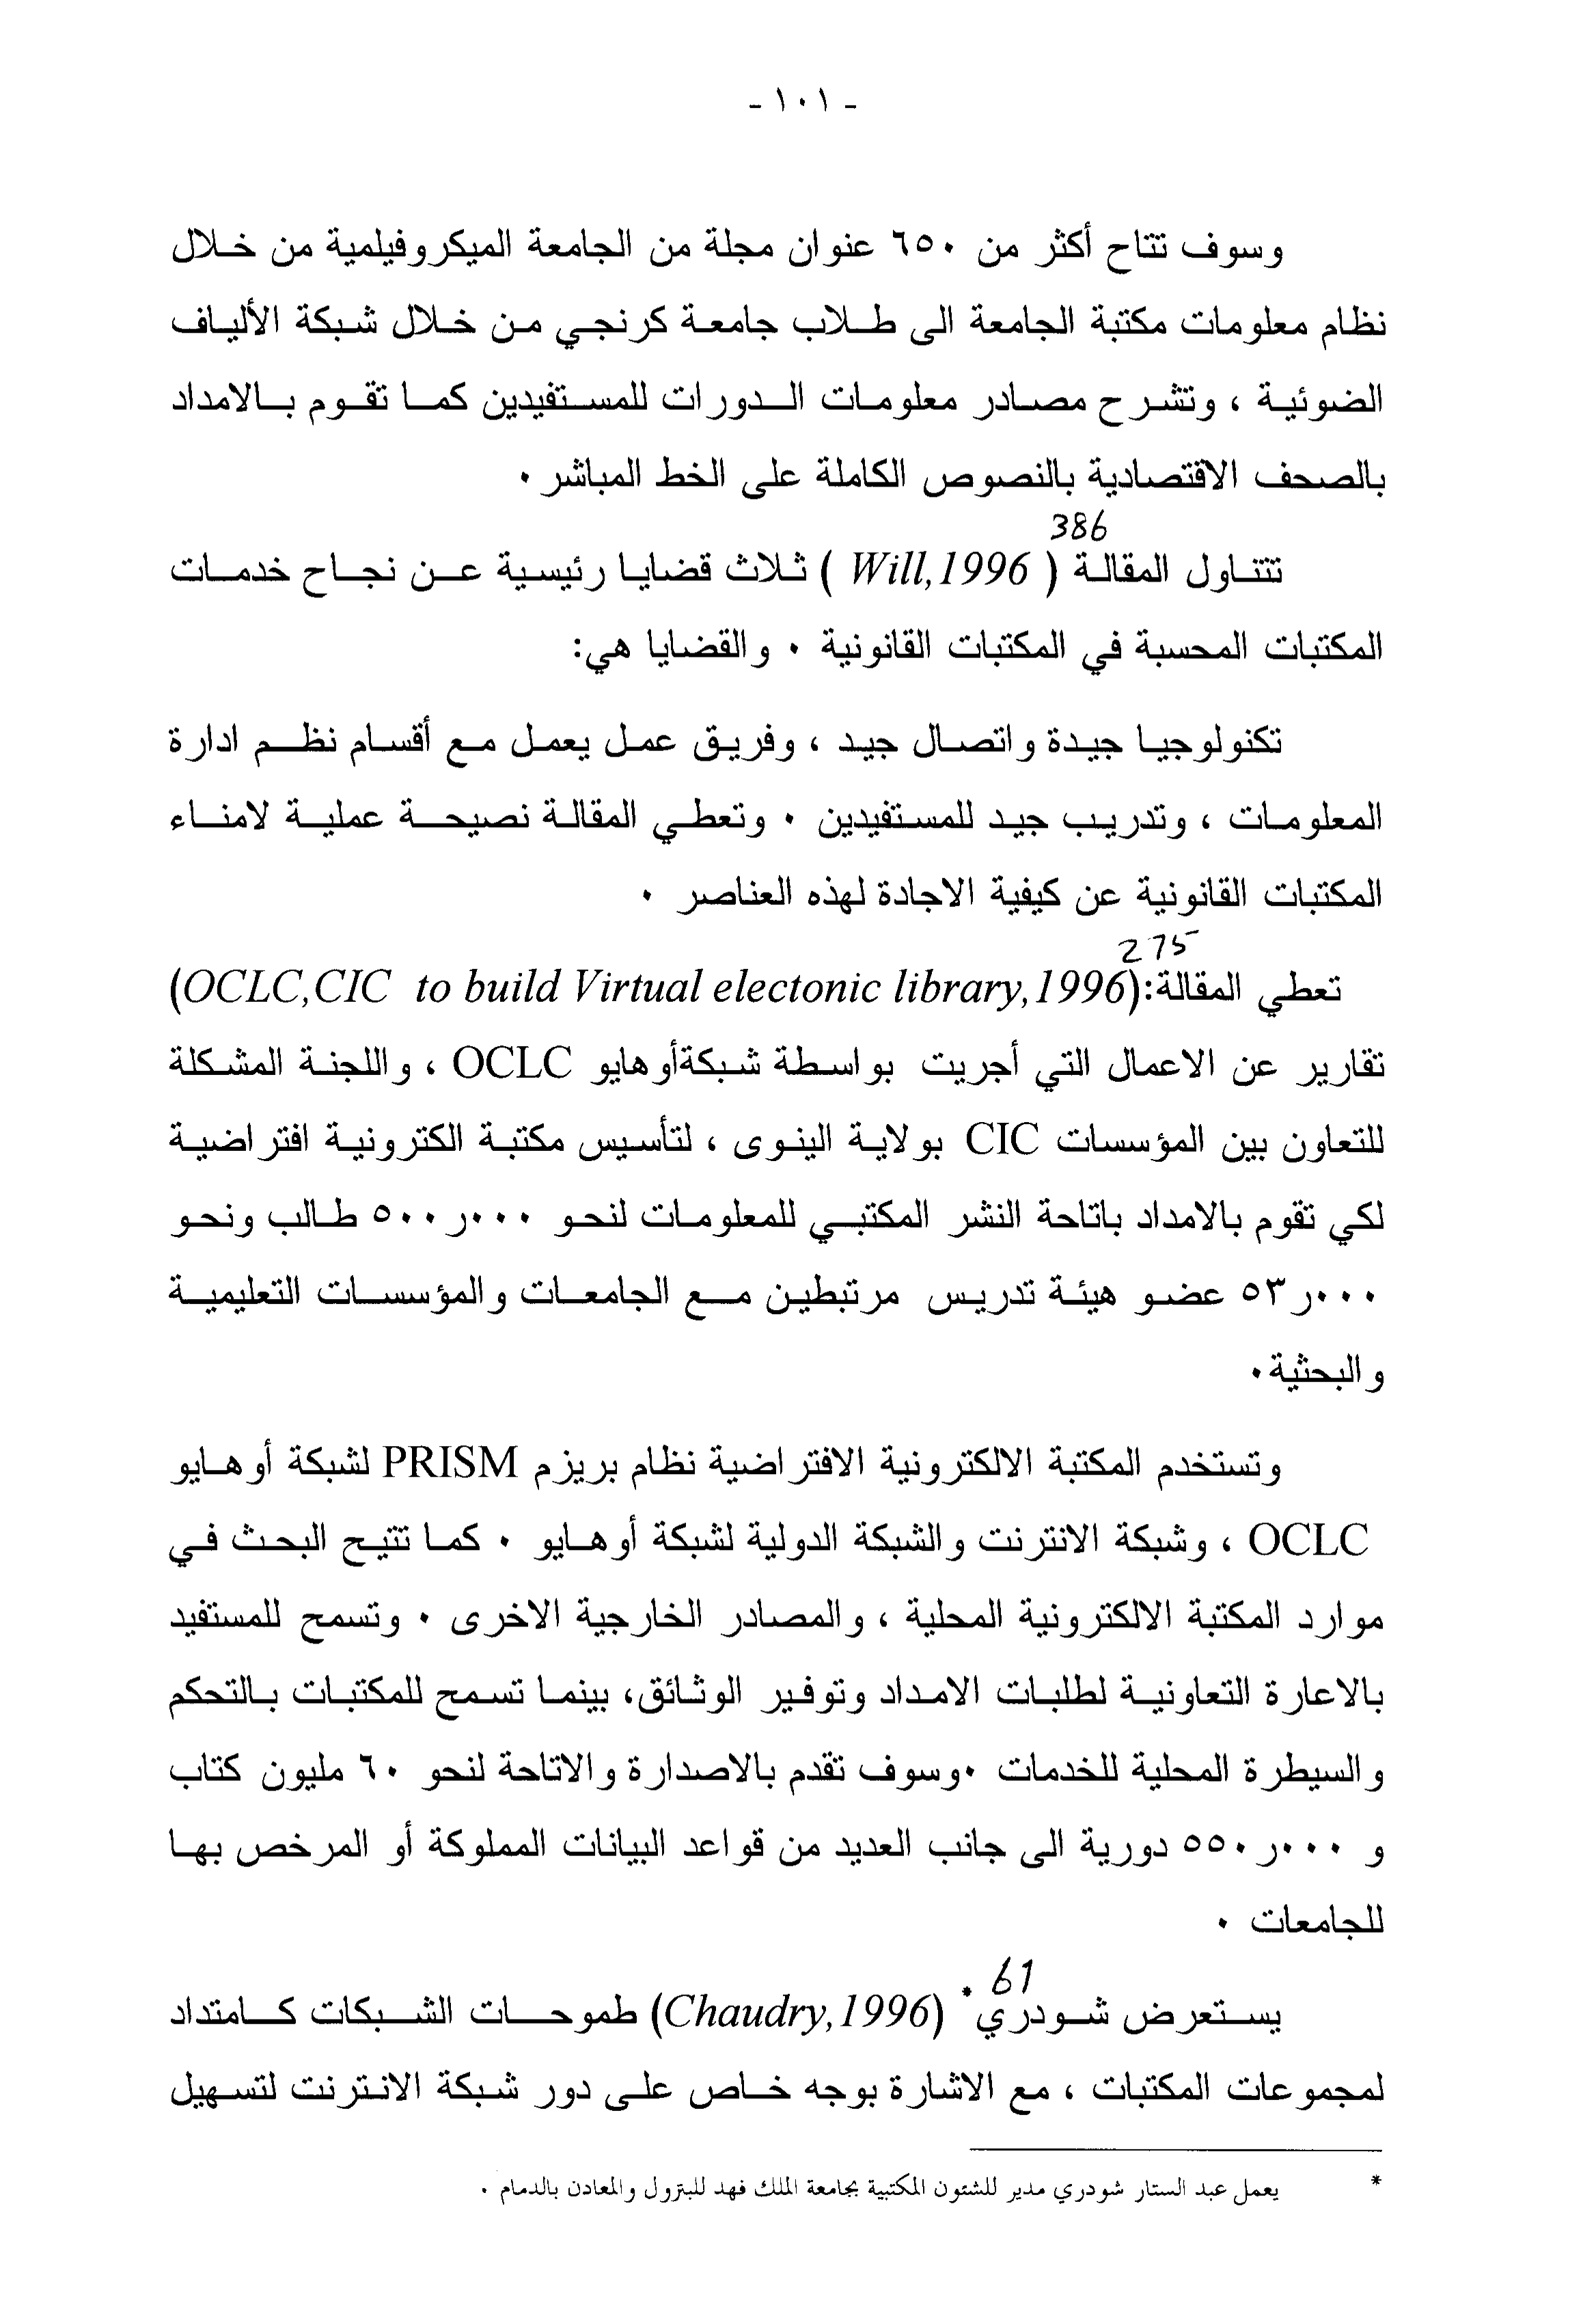 - ١٠١ -
وسوف تتاح أكثر من ٦٥٠ عنوان مجلة من الجامعة الميكروفيلمية من خلال
نظام معلومات مكتبة الجامعة الى طلاب جامعة كرنجي من خلال شبكة الألياف
الضوئية ، وتشرح مصادر معلومات الدورات للمستفيدين كما تقوم بالامداد
بالصحف الاقتصادية بالنصوص الكاملة على الخط المباشر ٠
386
تتناول المقالة ( Will,1996 ) ثلاث قضايا رئيسية عن نجاح خدمات
المكتبات المحسبة في المكتبات القانونية ٠ والقضايا هي:
تكنولوجيا جيدة واتصال جيد ، وفريق عمل يعمل مع أقسام نظم ادارة
المعلومات ، وتدريب جيد للمستفيدين ٠ وتعطي المقالة نصيحة عملية لامناء
المكتبات القانونية عن كيفية الاجادة لهذه العناصر ٠
275
تعطي المقالة:(OCLC,CIC to build Virtual electonic library,1996)
تقارير عن الاعمال التي أجريت بواسطة شبكةأوهايو OCLC ، واللجنة المشكلة
للتعاون بين المؤسسات CIC بولاية الينوى ، لتأسيس مكتبة الكترونية افتراضية
لكي تقوم بالامداد باتاحة النشر المكتبي للمعلومات لنحو ٠٠٠ر٥٠٠ طالب ونحو
٠٠٠ر٥٣ عضو هيئة تدريس مرتبطين مع الجامعات والمؤسسات التعليمية
والبحثية٠
وتستخدم المكتبة الالكترونية الافتراضية نظام بريزم PRISM لشبكة أوهايو
OCLC ، وشبكة الانترنت والشبكة الدولية لشبكة أوهايو ٠ كما تتيح البحث في
موارد المكتبة الالكترونية المحلية ، والمصادر الخارجية الاخرى ٠ وتسمح للمستفيد
بالاعارة التعاونية لطلبات الامداد وتوفير الوثائق، بينما تسمح للمكتبات بالتحكم
والسيطرة المحلية للخدمات ٠وسوف تقدم بالاصدارة والاتاحة لنحو ٦٠ مليون كتاب
و ٠٠٠ر٥٥٠ دورية الى جانب العديد من قواعد البيانات المملوكة أو المرخص بها
للجامعات ٠
61
يستعرض شودري* (Chaudry,1996) طموحات الشبكات كامتداد
لمجموعات المكتبات ، مع الاشارة بوجه خاص على دور شبكة الانترنت لتسهيل
* يعمل عبد الستار شودري مدير للشئون المكتبية بجامعة الملك فهد للبترول والمعادن بالدمام .